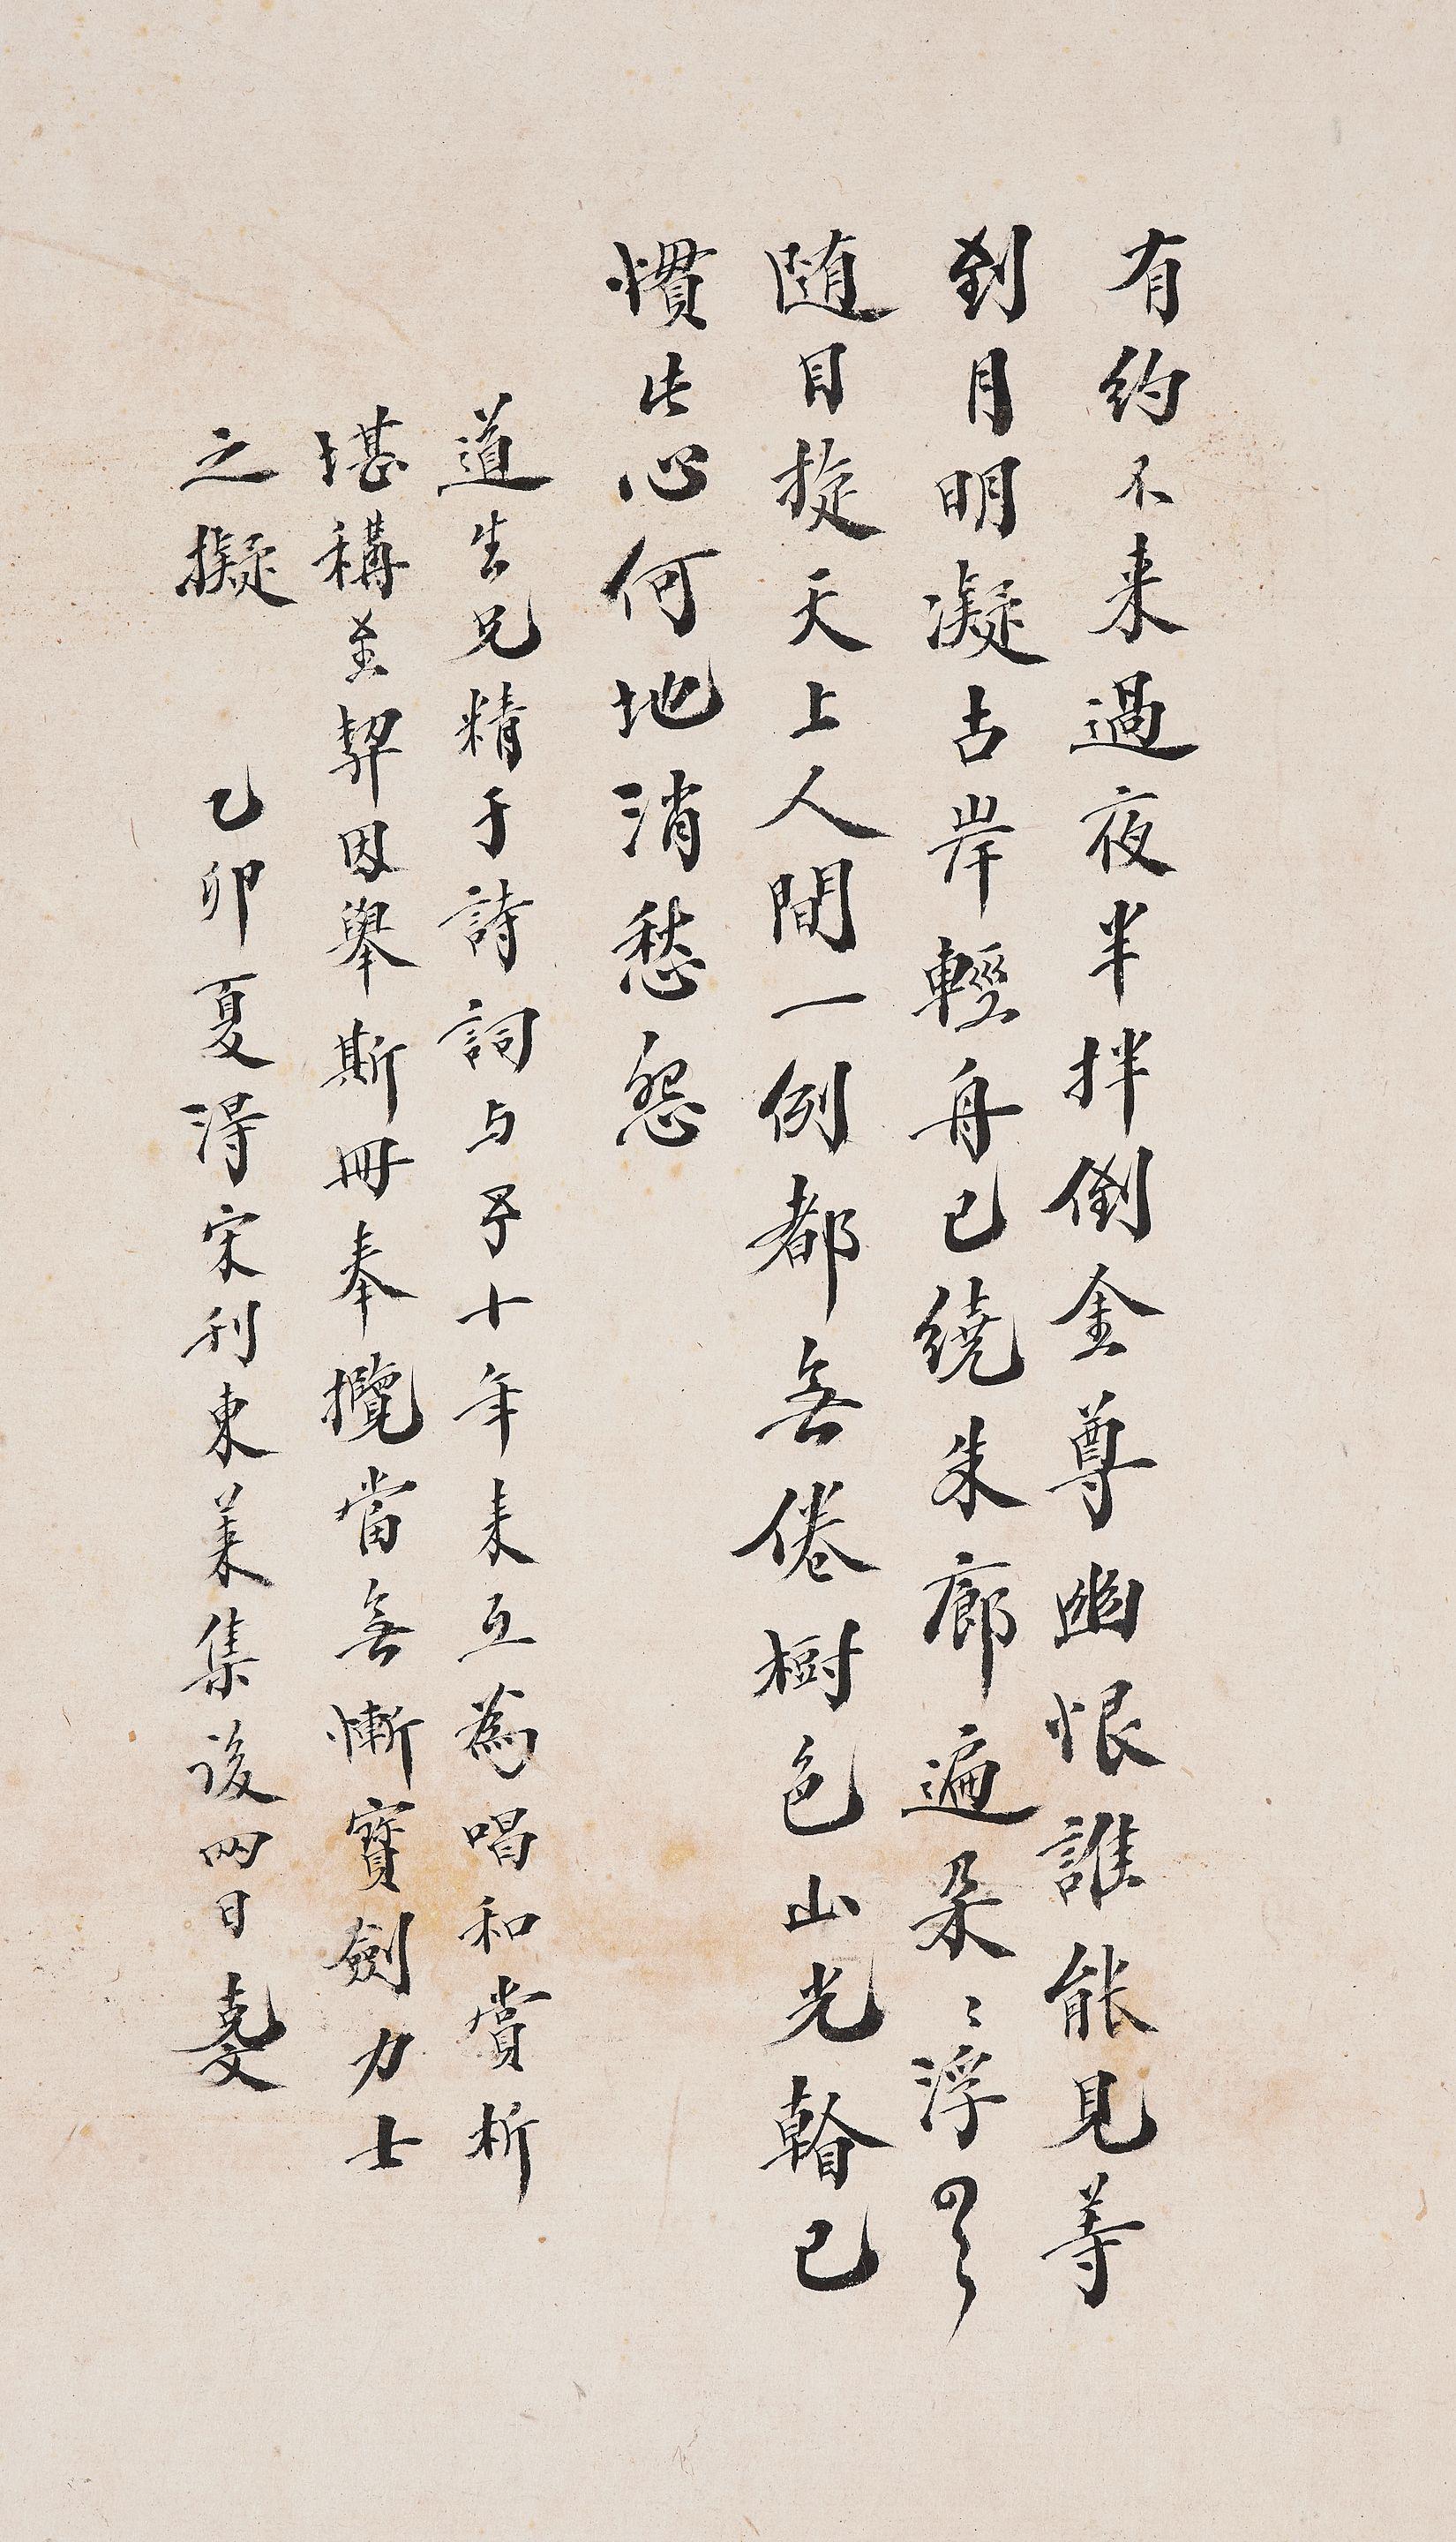 有約不来過夜半拌倒金尊幽恨誰能見等
到月明凝古岸輕舟已繞朱廊遍朵〻浮雲
随目旋天上人間一例都無倦樹色山光翰已
慣此心何地消愁怨
道生兄精于詩詞与予十年来互為唱和賞析
堪稱至契因舉斯冊奉攬當無慚寶劍力士
之擬　乙卯夏淂宋刊東莱集後四日